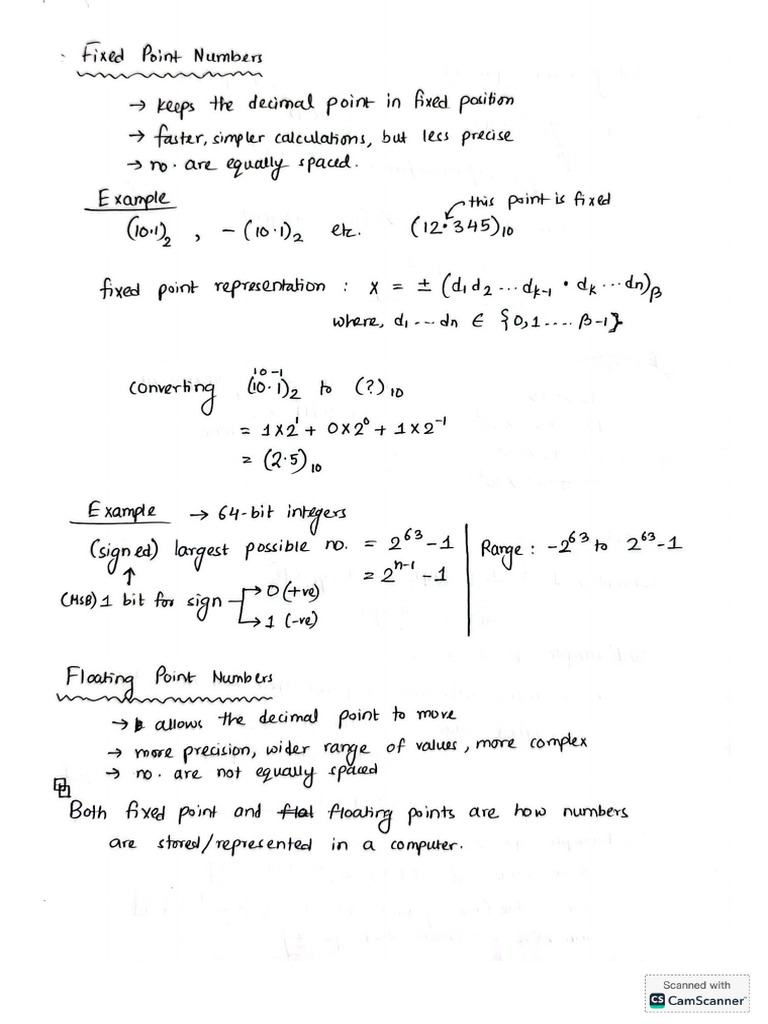 Fixed Point Numbers
→ keeps the decimal point in fixed position
→ faster, simpler calculations, but less precise
→ no. are equally spaced.
Example
this point is fixed
(10.1)₂ , - (10.1)₂ etc. (12.345)₁₀
fixed point representation : x = ± (d₁ d₂ ... dₖ₋₁ . dₖ ... dn)β
where, d₁ ... dn ∈ {0,1 .... β-1}
1 0 -1
converting (10.1)₂ to (?)₁₀
= 1x2¹ + 0x2⁰ + 1x2⁻¹
= (2.5)₁₀
Example → 64-bit integers
(signed) largest possible no. = 2⁶³-1
= 2ⁿ⁻¹ -1
Range : -2⁶³ to 2⁶³-1
(MSB) 1 bit for sign → 0 (+ve)
→ 1 (-ve)
Floating Point Numbers
→ allows the decimal point to move
→ more precision, wider range of values, more complex
→ no. are not equally spaced
Both fixed point and flot floating points are how numbers
are stored/represented in a computer.
Scanned with
CS CamScanner